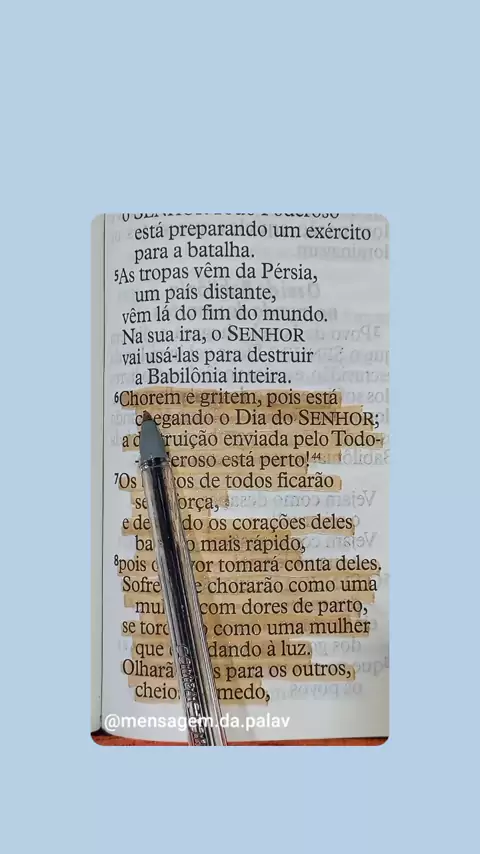 está preparando um exército
para a batalha.
5As tropas vêm da Pérsia,
um país distante,
vêm lá do fim do mundo.
Na sua ira, o SENHOR
vai usá-las para destruir
a Babilônia inteira.
6Chorem e gritem, pois está
chegando o Dia do SENHOR;
a d truição enviada pelo Todo-
eroso está perto!44
7Os os de todos ficarão
se orça,
e de do os corações deles
ba o mais rápido,
8pois o vor tomará conta deles.
Sofre e chorarão como uma
mul com dores de parto,
se torc o como uma mulher
que dando à luz.
Olharã s para os outros,
cheio medo,
@mensagem.da.palav